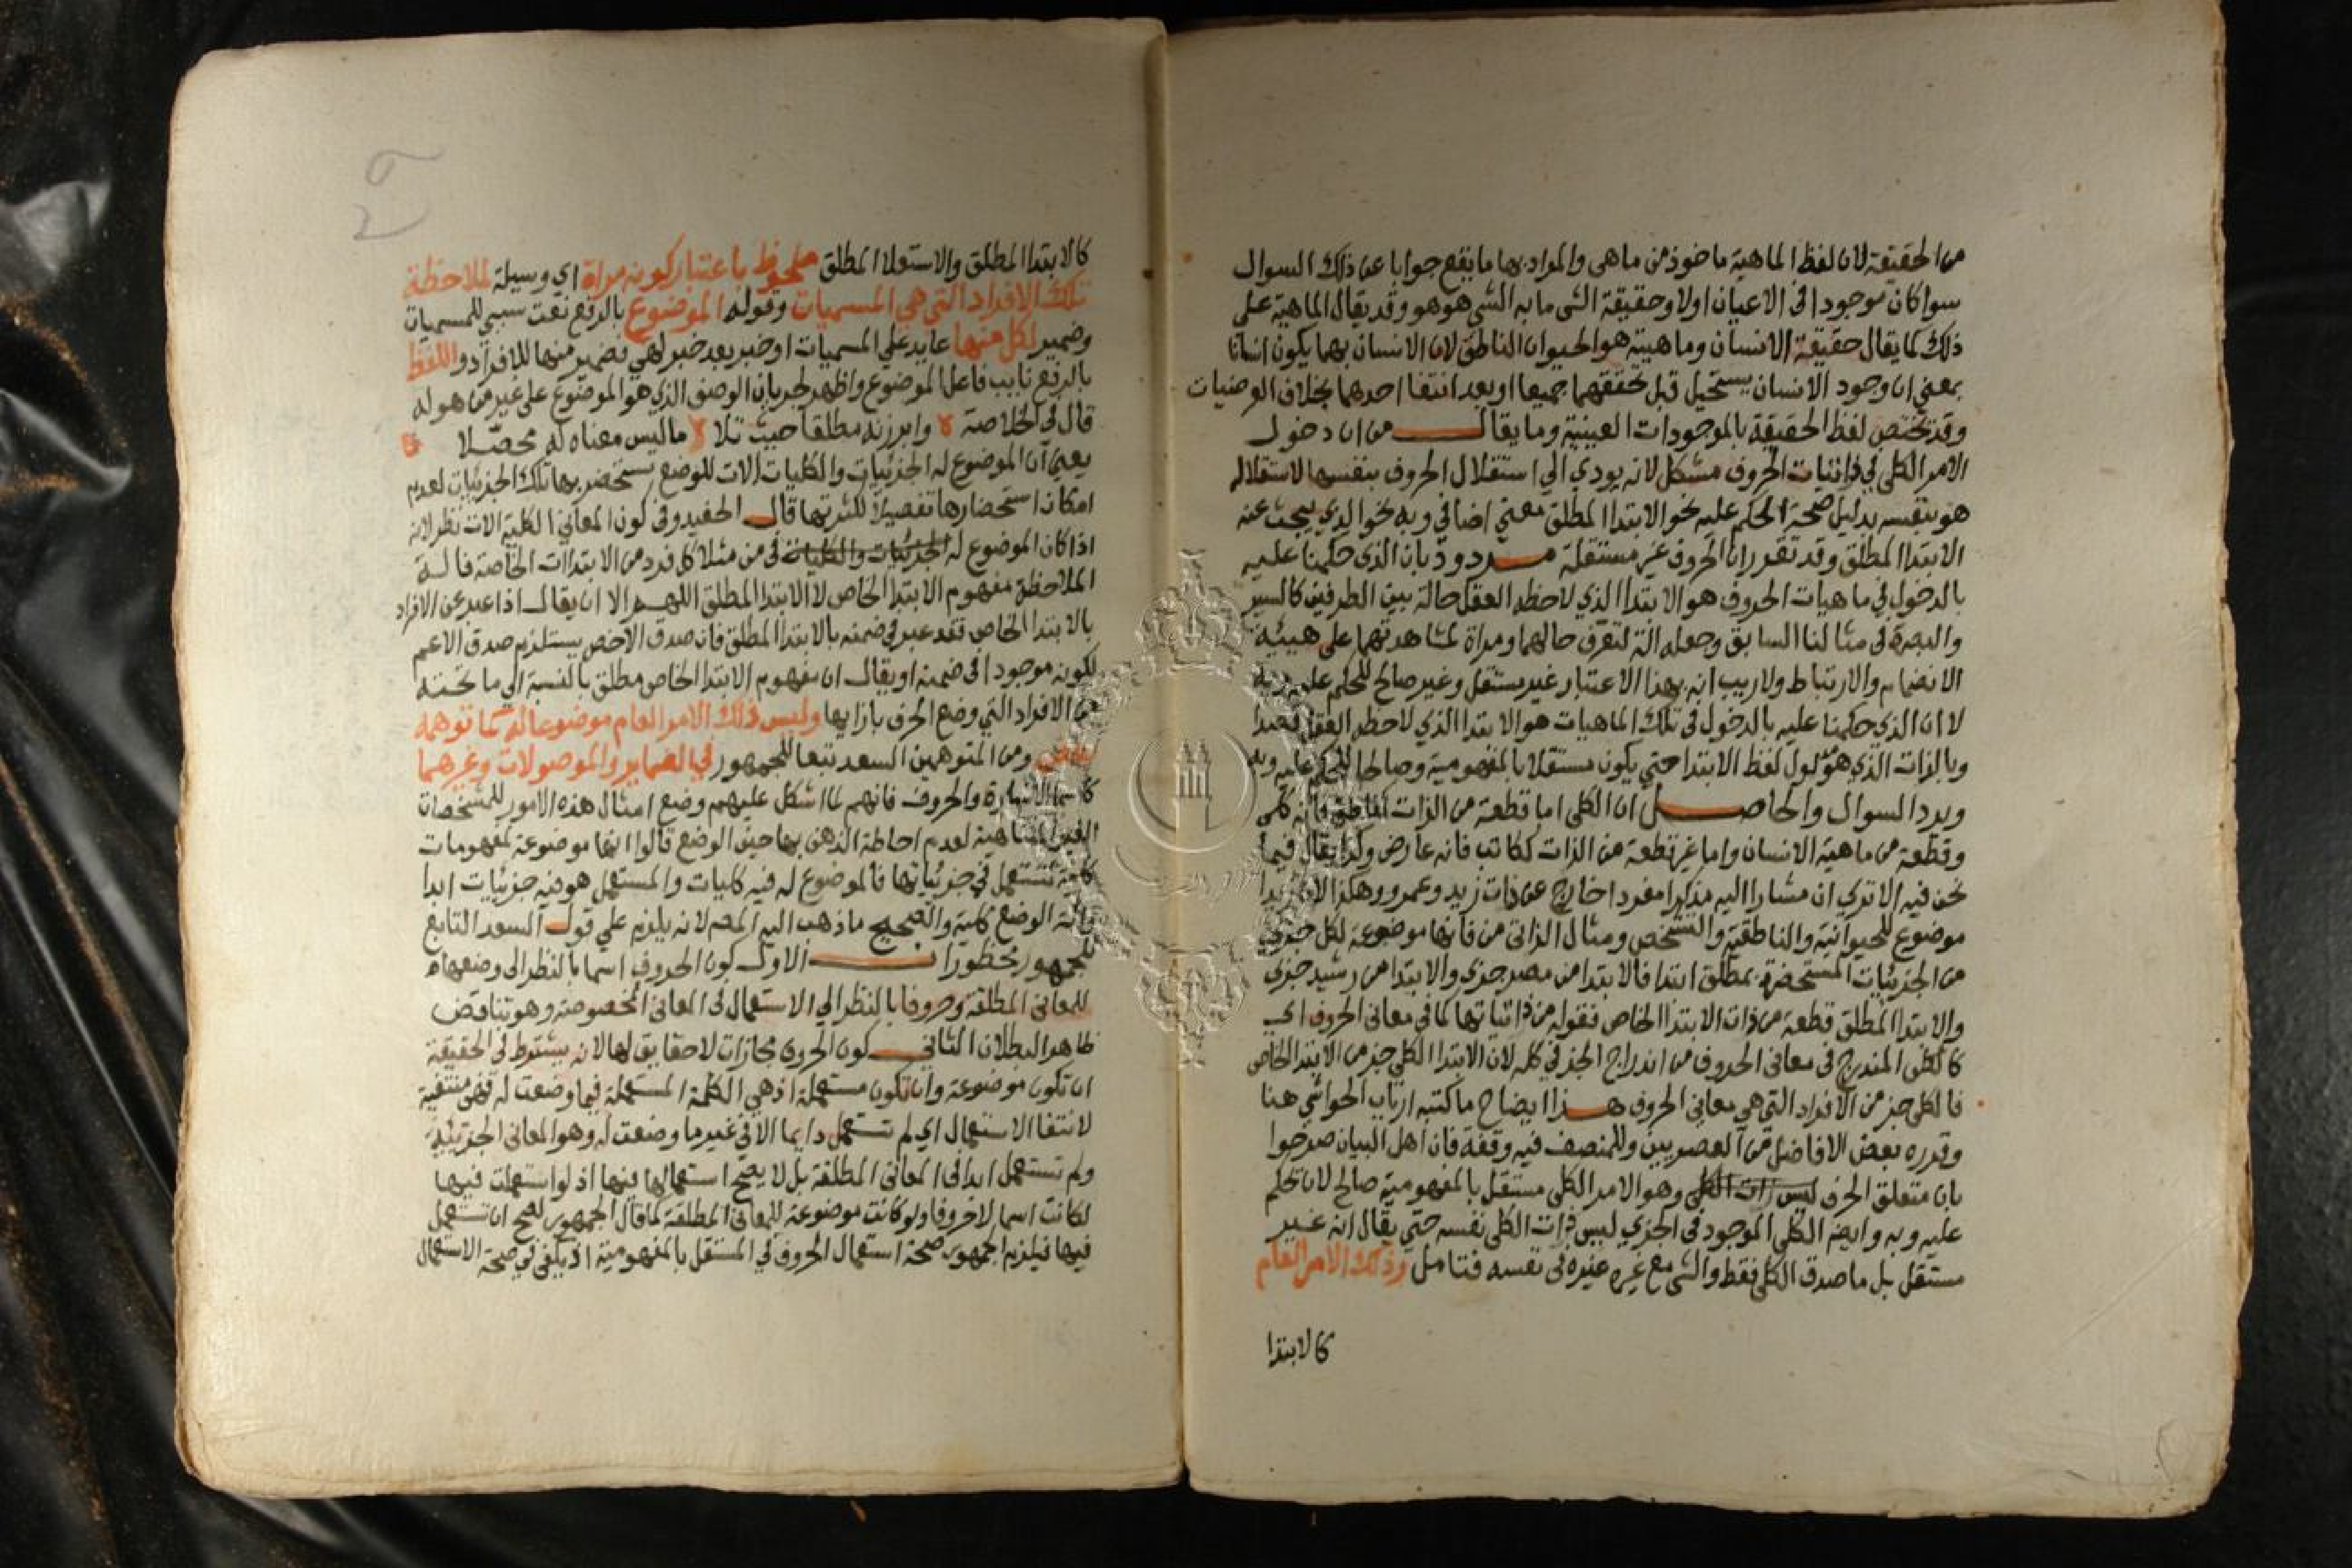 من الحقيقة لان لفظ الماهية ماخوذ من ما هي والمراد بها ما يقع جوابا عن ذلك السوال
سوا كان موجودا في الاعيان اولا وحقيقة الشي ما به الشي هو هو وقد يقال الماهية على
ذلك كما يقال حقيقة الانسان وماهيته هو الحيوان الناطق لان الانسان بهما يكون انسانا
بمعني ان وجود الانسان يستحيل قبل تحققهما جميعا او بعد انتفا احدهما بخلاف العرضيات
وقد تختص لفظ الحقيقة بالموجودات العينية وما يقال من ان دخول
الامر الكلي في ذاتيات الحروف مشكل لانه يودي الي استقلال الحروف بنفسها لاستقلاله
هو بنفسه بدليل صحة الحكم عليه نحو الابتدا المطلق معني اضافي وبه نحو الذي يبحث عنه
الابتدا المطلق وقد تقرر ان الحروف غير مستقلة مردود بان الذي حكمنا عليه
بالدخول في ماهيات الحروف هو الابتدا الذي لاحظه العقل حالة بين الطرفين كالسير
والبصرة في مثالنا السابق وجعله الة لتعرف حالهما ومراة لمشاهدتهما على هيئة
الانضمام والارتباط ولا ريب انه بهذا الاعتبار غير مستقل وغير صالح للحكم عليه وبه
لا ان الذي حكمنا عليه بالدخول في تلك الماهيات هو الابتدا الذي لاحظه العقل قصدا
وبالذات الذي هو مدلول لفظ الابتدا حتي يكون مستقلا بالمفهومية وصالحا للحكم عليه وبه
ويرد السوال والحاصل ان الكلي اما قطعة من الذات كناطق فانه كلي
وقطعة من ماهية الانسان واما غير قطعة من الذات ككاتب فانه عارض وكذا يقال فيما
نحن فيه الا تري ان مشارا اليه مذكرا مفردا خارج عن ذات زيد وعمرو وهكذا لان زيدا
موضوع للحيوانية والناطقية والتشخص ومثال الذاتي من فانها موضوعة لكل جزي
من الجزئيات المستحضرة بمطلق ابتدا فالابتدا من مصر جزي والابتدا من رشيد جزي
والابتدا المطلق قطعة من ذات الابتدا الخاص فقوله من ذاتياتها كما في معاني الحروف اي
كالكلي المندرج في معاني الحروف من اندراج الجز في كله لان الابتدا الكلي جز من الابتدا الخاص
فالكلي جز من الافراد التي هي معاني الحروف هذا ايضاح ما كتبه ارباب الحواشي هنا
وقرره بعض الافاضل من العصريين وللمنصف فيه وقفة فان اهل البيان صرحوا
بان متعلق الحرف ليس ذات الكلي وهو الامر الكلي مستقل بالمفهومية صالح لان تحكم
عليه وبه وايضا الكلي الموجود في الجزي ليس ذات الكلي نفسه حتي يقال انه غير
مستقل بل ما صدق الكلي فقط والشي مع غيره غيره في نفسه فتامل وذلك الامر العام
كالابتدا
كالابتدا المطلق والاستعلا المطلق ملحوظ باعتبار كونه مراة اي وسيلة لملاحظة
تلك الافراد التي هي المسميات وقوله الموضوع بالرفع نعت سببي للمسميات
وضمير لكل منها عايد علي المسميات او خبر بعد خبر لهي فضمير منها للافراد واللفظ
بالرفع نايب فاعل الموضوع واظهر لجريان الوصف الذي هو الموضوع على غير من هو له
قال في الخلاصة وابرزنه مطلقا حيث تلا ما ليس معناه له محصلا
يعني ان الموضوع له الجزئيات والكليات الات للوضع يستحضر بها تلك الجزئيات لعدم
امكان استحضارها تفصيلا لكثرتها قال الحفيد وفي كون المعاني الكلية الات نظر لانه
اذا كان الموضوع له الجزئيات والكليات في من مثلا كل فرد من الابتداات الخاصة فالة
الملاحظة مفهوم الابتدا الخاص لا الابتدا المطلق اللهم الا ان يقال اذا عبر عن الافراد
بالابتدا الخاص فقد عبر في ضمنه بالابتدا المطلق فان صدق الاخص يستلزم صدق الاعم
لكونه موجودا في ضمنه او يقال ان مفهوم الابتدا الخاص مطلق بالنسبة الي ما تحته
من الافراد التي وضع الحرف بازايها وليس ذلك الامر العام موضوعا له كما توهمه
بعض ومن المتوهمين السعد تبعا للجمهور في الضماير والموصولات وغيرهما
كاسما الاشارة والحروف فانهم لما اشكل عليهم وضع امثال هذه الامور للمشخصات
الغير المتناهية لعدم احاطة الذهن بها حين الوضع قالوا انها موضوعة لمفهومات
كلية تستعمل في جزئياتها فالموضوع له فيه كليات والمستعمل هو فيه جزئيات ابدا
والة الوضع كلية والصحيح ما ذهب اليه المصم لانه يلزم علي قول السعد التابع
للجمهور محظوران الاول كون الحروف اسما بالنظر الى وضعها
للمعاني المطلقة وحروفا بالنظر الي الاستعمال في المعاني المخصوصة وهو تناقض
ظاهر البطلان الثاني كون الحروف مجازات لا حقايق لها لانه يشترط في الحقيقة
ان تكون موضوعة وان تكون مستعملة اذ هي الكلمة المستعملة فيما وضعت له فهي منتفية
لانتفا الاستعمال اي لم تستعمل دايما الا في غير ما وضعت له وهو المعاني الجزئية
ولم تستعمل ابدا في المعاني المطلقة بل لا يصح استعمالها فيها اذ لو استعملت فيها
لكانت اسما لا حروفا ولو كانت موضوعة للمعاني المطلقة كما قال الجمهور لصح ان تستعمل
فيها فيلزم الجمهور صحة استعمال الحروف في المستقل بالمفهومية اذ يكفي في صحة الاستعمال